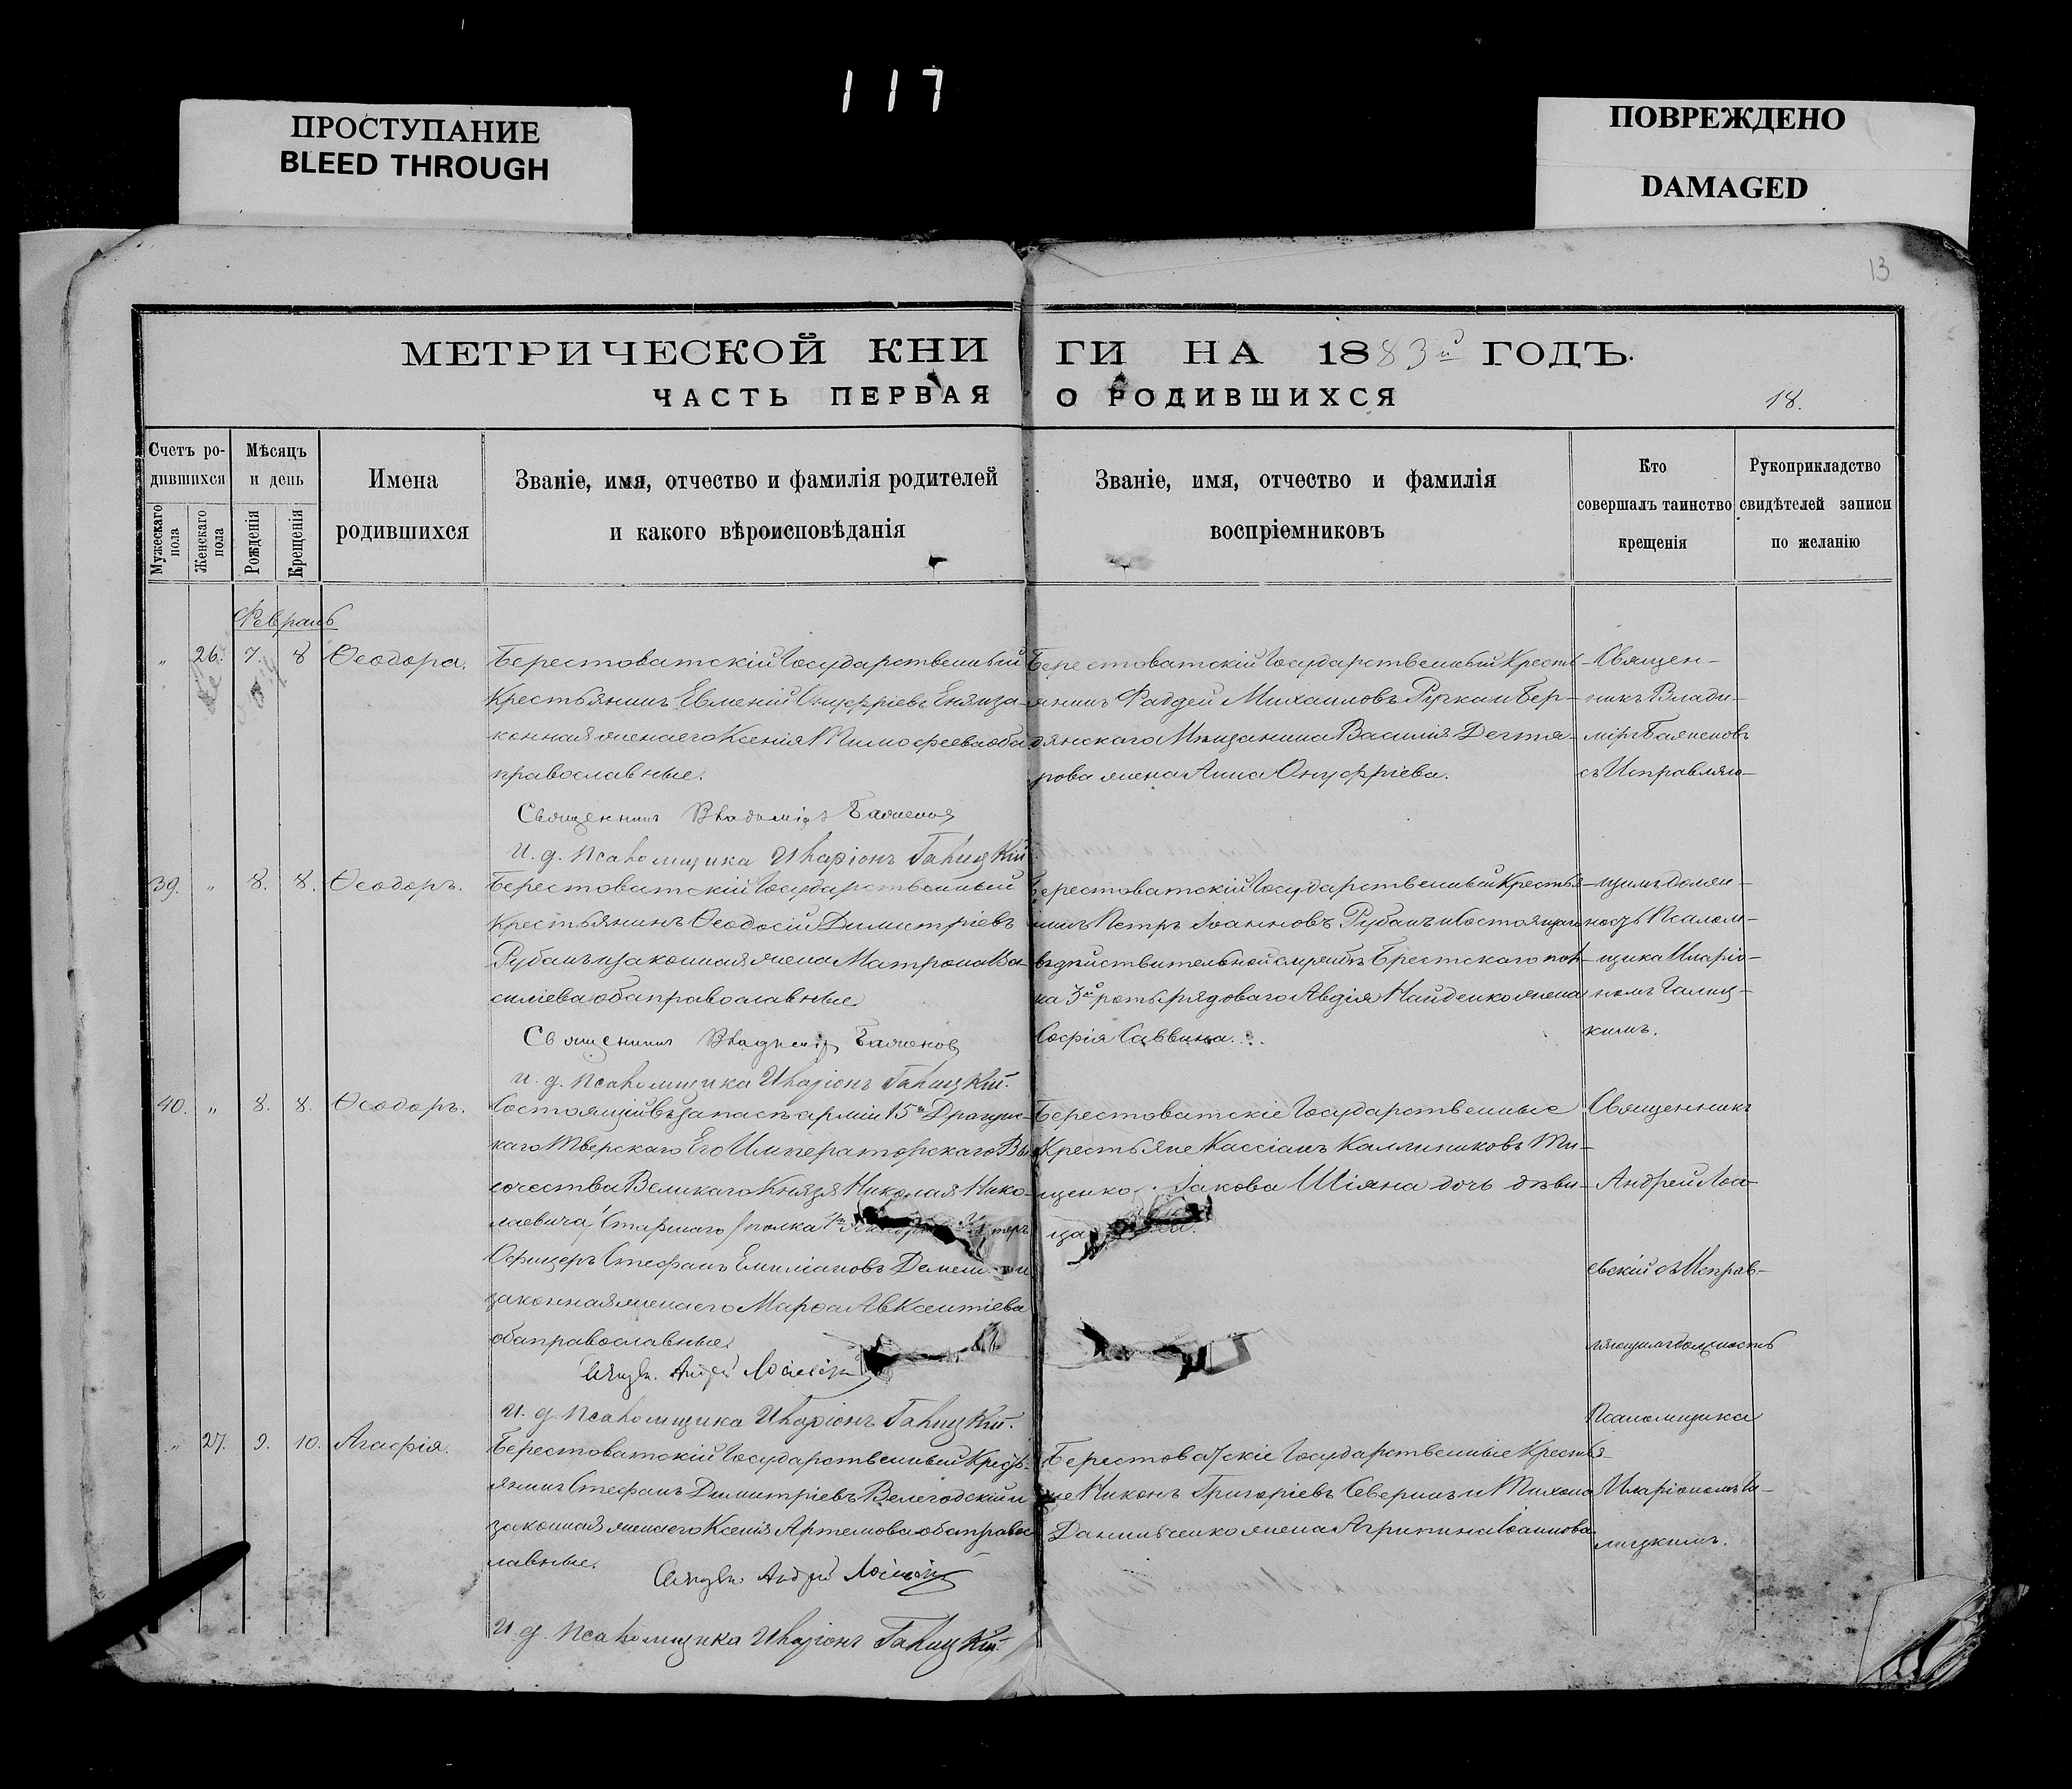 117
ПРОСТУПАНИЕ
BLEED THROUGH
ПОВРЕЖДЕНО
DAMAGED
13
МЕТРИЧЕСКОЙ КНИГИ НА 1883й ГОДЪ.
ЧАСТЬ ПЕРВАЯ О РОДИВШИХСЯ
18.
Счетъ ро-
дившихся
Мужескаго пола
Женскаго пола
Мѣсяцъ
и день
Рожденія
Крещенія
Имена
родившихся
Званіе, имя, отчество и фамилія родителей
и какого вѣроисповѣданія
Званіе, имя, отчество и фамилія
воспріемниковъ
Кто
совершалъ таинство
крещенія
Рукоприкладство
свидѣтелей записи
по желанію
Февраль
„ 26. 7. 8 Ѳеодора.
Берестоватскій Государственный
Крестьянинъ Евменій Онуфріевъ за-
конная жена его Ксенія Тимофеева оба
православные.
Священникъ Владиміръ Баженовъ
И. д. Псаломщика Иларіонъ Галицкій
Берестоватскій Государственный Кресть-
янинъ Фаддей Михаиловъ и Бер-
дянскаго Мѣщанина Василія Дегтя-
рова жена Анна Онуфріева.
Священ-
никъ Влади-
міръ Баженовъ
съ Исправляю-
39. „ 8. 8. Ѳеодоръ.
Берестоватскій Государственный
Крестьянинъ Ѳеодосій Димитріевъ
Рубанъ и законная жена Матрона Ва-
силіева оба православные
Священникъ Владиміръ Баженовъ
И. д. Псаломщика Иларіонъ Галицкій.
Берестоватскій Государственный Крестья-
нинъ Петръ Іоанновъ Рубанъ и Состоящаго
въ дѣйствительной службѣ Брестскаго пол-
ка 3й роты рядоваго Авдія Найденко жена
Софія Саввина.
щимъ должн-
ность Псалом-
щика Иларіо-
номъ Галиц-
кимъ.
40. „ 8. 8. Ѳеодоръ.
Состоящій въ запасѣ арміи 15го Драгунс-
каго Тверскаго Его Императорскаго Вы-
сочества Великаго Князя Николая Нико-
лаевича Старшаго полка
Офицеръ Стефанъ Емиліановъ и
законная жена его Марѳа Авксентіева
оба православные.
Священ. Андрей Лосіевскій
И. д. Псаломщика Иларіонъ Галицкій.
Берестоватскіе Государственные
Крестьяне Кассіанъ Каллиниковъ Ти-
щенко Іакова Шіяна дочь дѣви-
ца
Священникъ
Андрей Лоси-
евскій съ Исправ-
ляющимъ должность
Псаломщика
Иларіономъ Га-
лицкимъ.
„ 27. 9. 10. Агафія.
Берестоватскій Государственный Крест-
янинъ Стефанъ Димитріевъ Велегодскій и
законная жена его Ксенія Артемова оба право-
лавные.
Священ. Андрей Лосіевскій
И. д. Псаломщика Иларіонъ Галицкій.
Берестоватскіе Государственные Крестья-
не Никонъ Григоріевъ Северинъ и Тихона
Данильченко жена Агрипина Іоаннова.